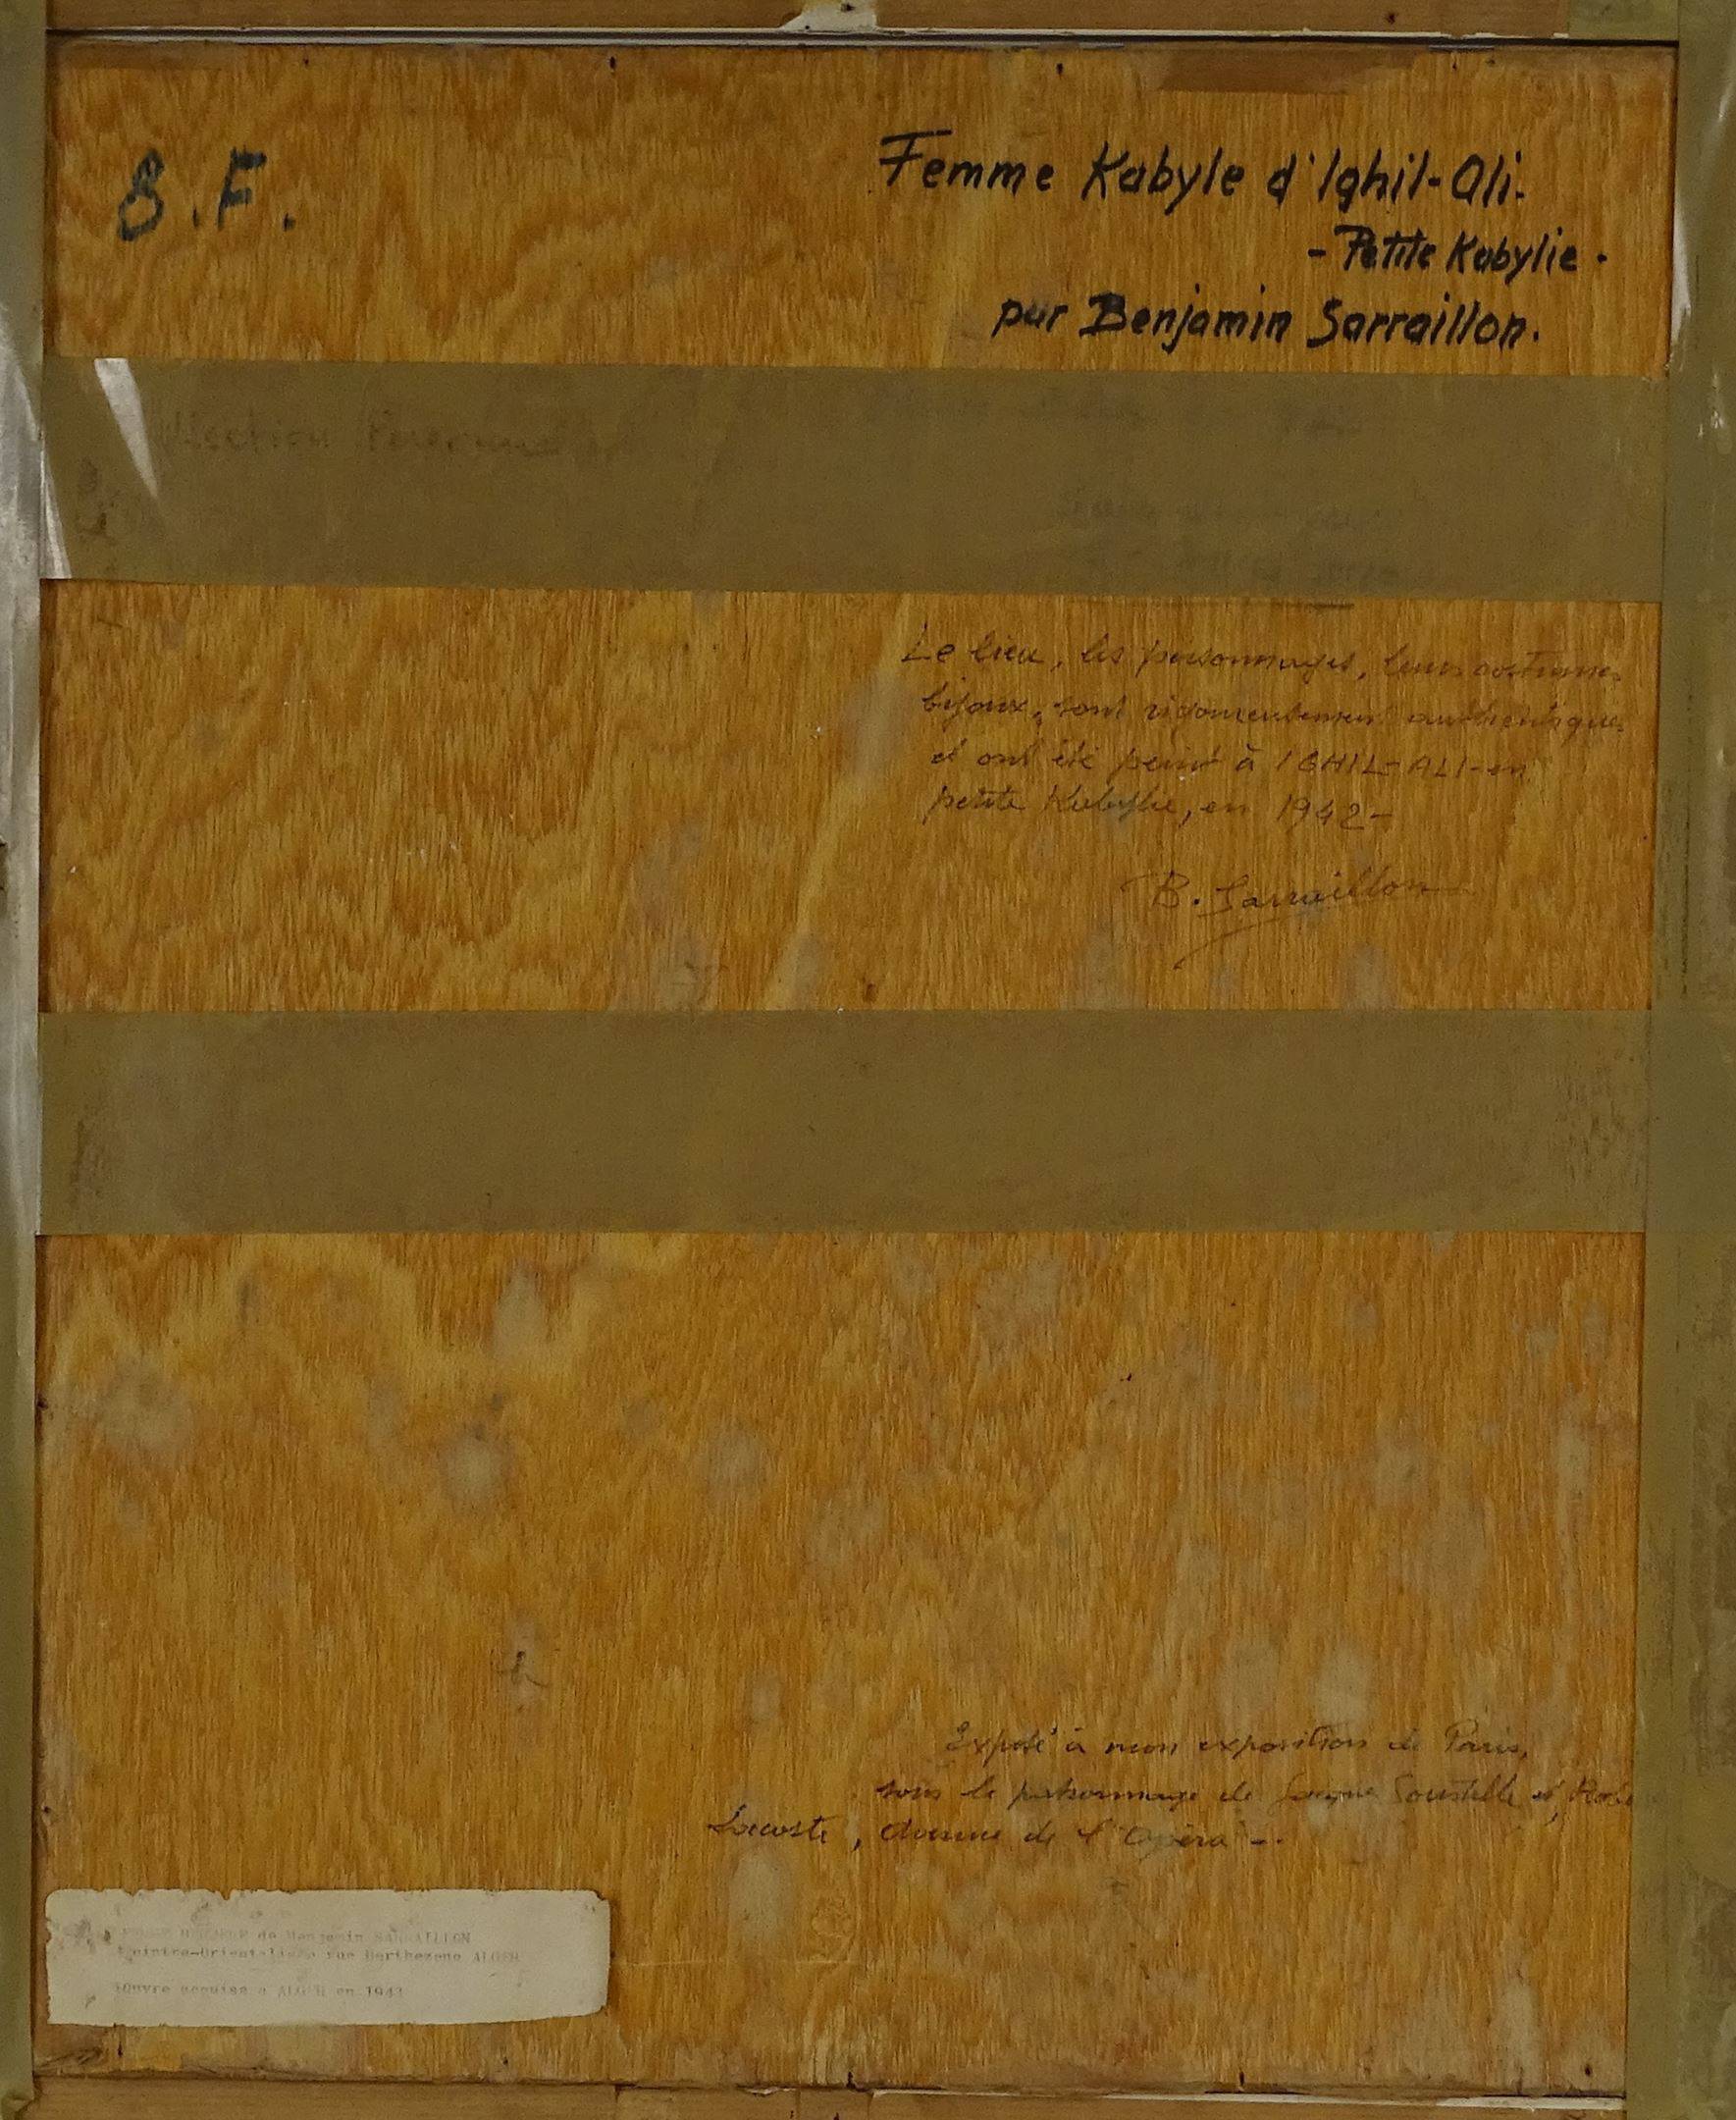 B.F.
Femme Kabyle d'Ighil-Ali.
- Petite Kabylie.
par Benjamin Sarraillon.
Le lieu, les personnages, leurs costumes
bijoux, sont rigoureusement authentiques
et ont été peint à IGHIL-ALI-en
petite Kabylie, en 1942-
B. Sarraillon
Exposé à mon exposition de Paris,
sous le patronnage de Jacques Soustelle et
Lacoste, Avenue de l'Opéra -.
de Benjamin SARRAILLON
Peintre-Orientaliste rue Berthezene ALGER
Oeuvre acquise à ALGER en 1943